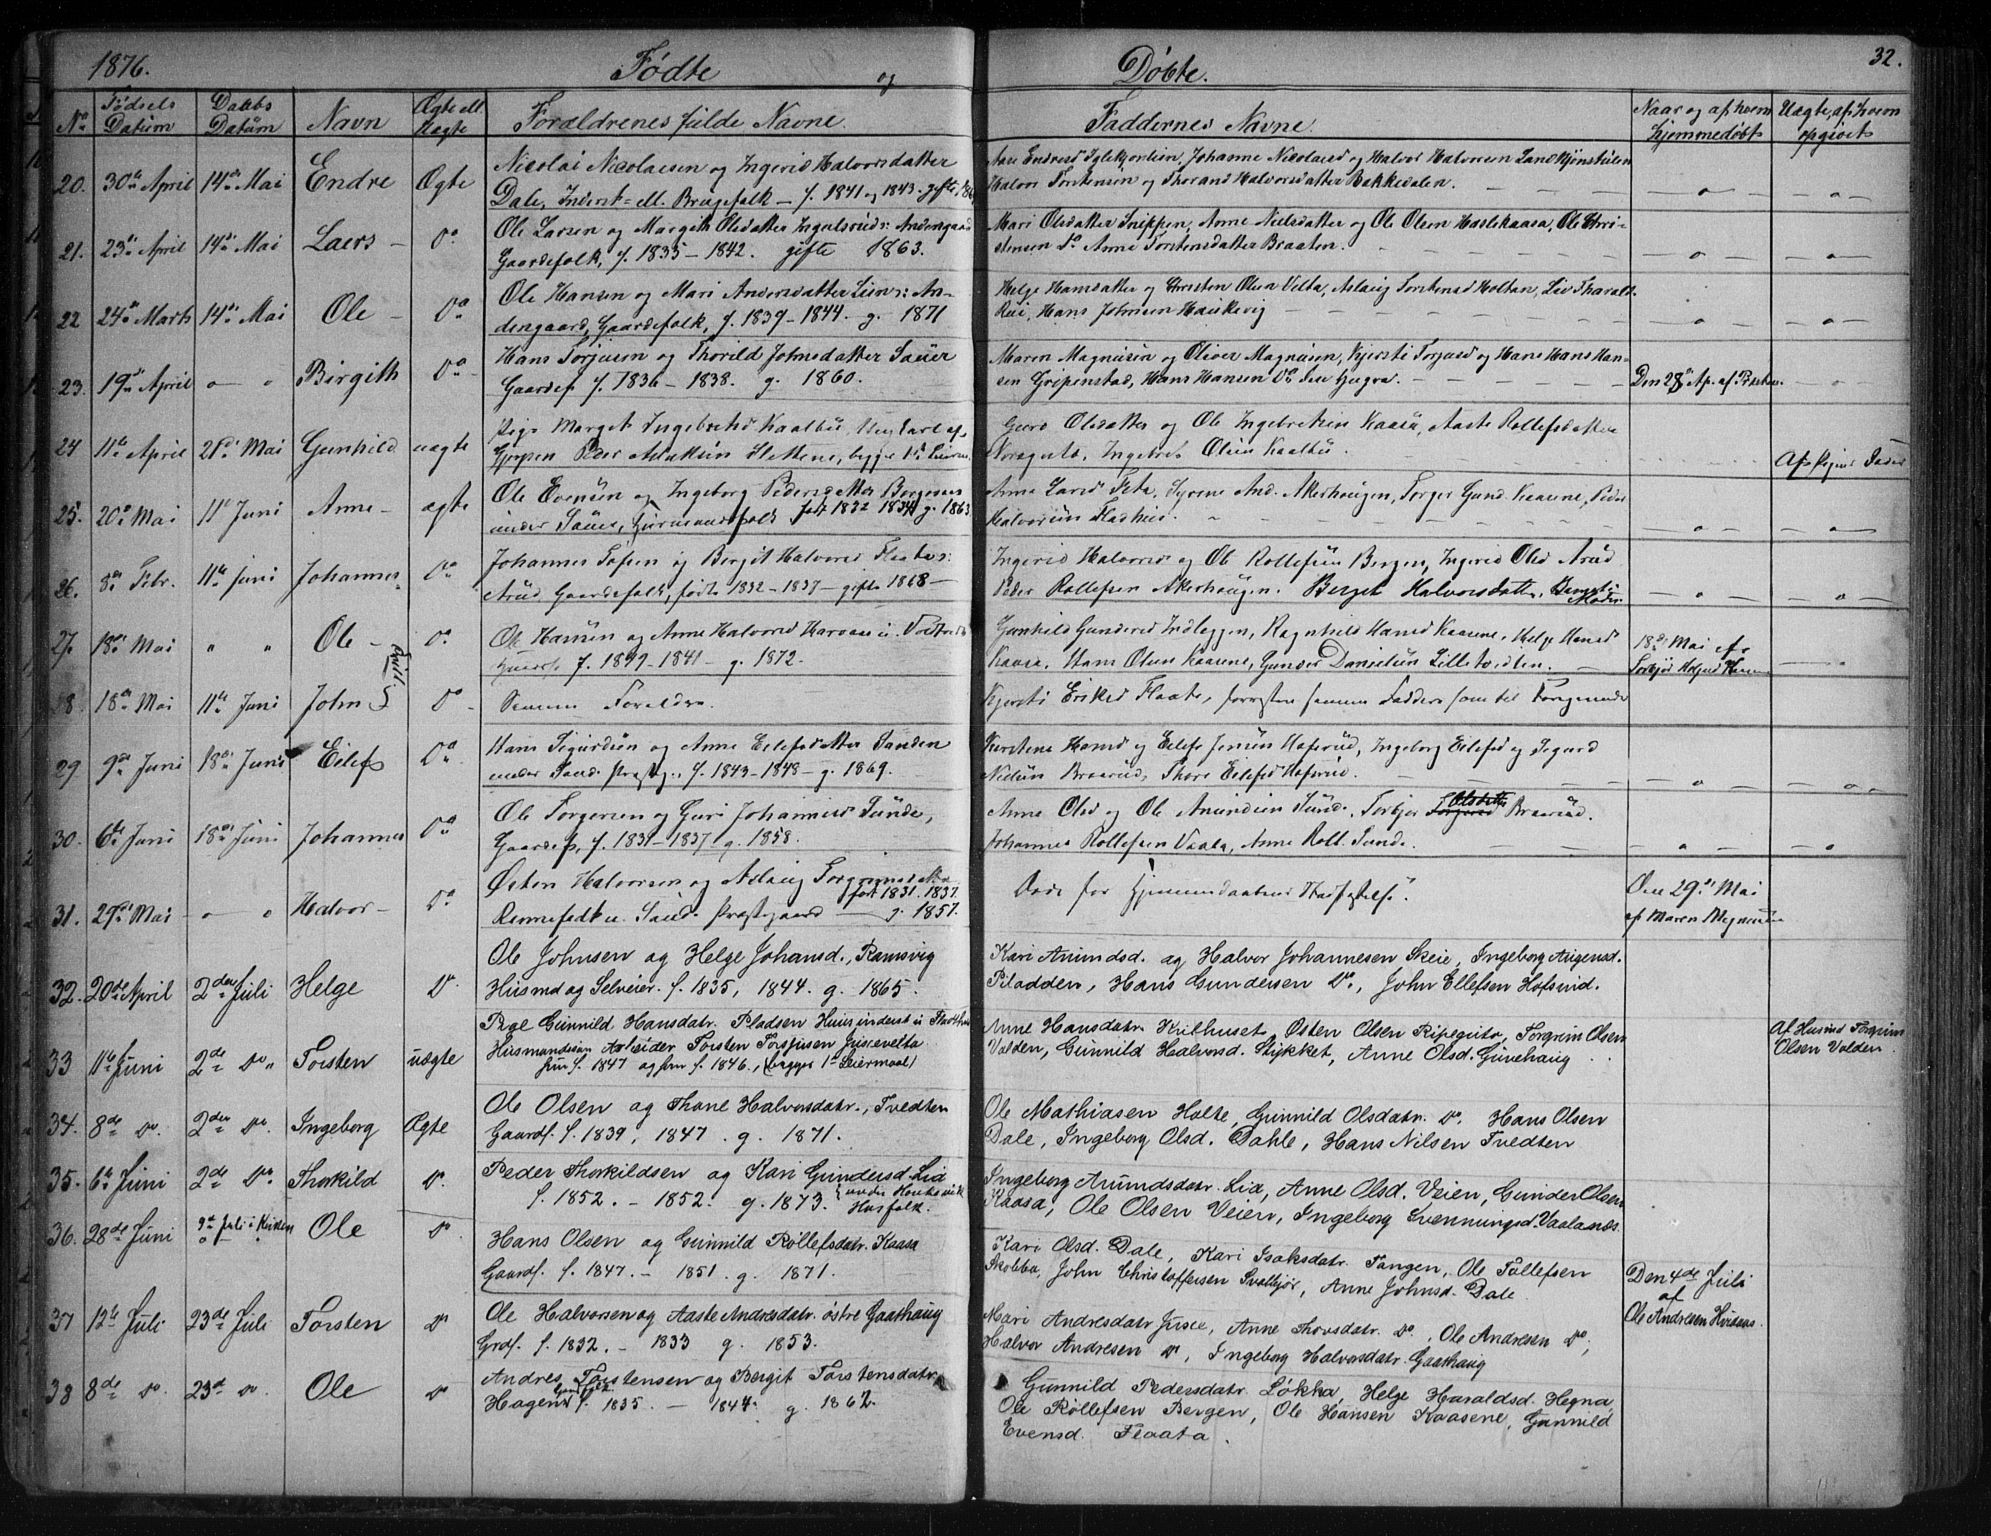 1876.
Fødte
og
Døbte.
32.
No
Fødsels Datum
Daabs Datum
Navn
Ægte ell. Uægte
Forældrenes fulde Navne.
Faddernes Navne.
Naar og af hvem hjemmedøbt
Uægte, af hvem opgivet
20. 30te April 14de Mai Endre Ægte
Nicolai Nicolaisen og Ingerid Halvorsdatter
Dale, Inderst= ell. Brugefolk — f. 1841 og 1843. gifte
Halvor Torstensen og Thorand Halvorsdatter Bakkedalen.
21. 23de April 14de Mai Laers Do
Ole Larsen og Margith Olsdatter
Gaardefolk, f. 1835 – 1842. gifte 1863.
Mari Olsdatter Snippen, Anne Nielsdatter og Ole Olsen Haslekaasa, Ole Chri-
stensen Do Anne Torstensdatter Braaten.
22 24de Marts 14de Mai Ole Do
Ole Hansen og Mari Andersdatter An-
dengaard, Gaardefolk, f. 1839 – 1844. g. 1871
Helge Hansdatter og Christen Olsen Aslaug Torstensd Holtan, Liv Tharald.
Hans Johnsen
23. 19de April Birgith Do
Hans Torjusen og Thorild Johnsdatter Sauer
Gaardef. f. 1836 – 1838. g. 1860.
Maren Magnusen og Oliver Magnusen, Kjersti Torjusd og Hans Hans Han-
sen Gripenstad, Hans Hansen Do
Den 28de Ap. af
24 11te April 21de Mai Gunhild uægte
Pige Margit Ingebretsd Kaalbu,
Gjerpen Peder
Olsdatter og Ole Ingebretsen Kaasa, Aaste Rollefsdatter
Ingebret Olsen Kaalbu.
Af Pigens Fader
25. 20de Mai 11te Juni Anne ægte
Ole Evensen og Ingeborg Pedersdatter Borgesen
under Saue, født 1832 1834 g. 1863
Anne And. Akerhaugen, Torger Gund. Kaasene, Peder
Halvorsen Fladhus.
26. 8de Febr. 11te Juni Johannes Do
Johannes og Bergit Halvorsd
Gaardefolk, født 1832 – 1837 – gifte 1868 –
Ingerid Halvorsd og Ole Rollefsen Bergen, Ingerid Olsd Arud
Peder Rollefsen Akerhaugen. Berget Halvorsdatter,
Moder
27. 18de Mai Ole Do
Ole Hansen og Anne Halvorsd
f. 1849 – 1841 – g. 1872.
Gunhild Gundersd Indleggen, Ragnhild Hansd Kaasene, Helge Hansd
Kaasa, Hans Olsen Kaasene, Gunder Danielsen Lilletvedten.
18de Mai af
28 18de Mai 11te Juni John Do
Tvill.
Samme Forældre.
Kjersti Eriksd Flaate, forresten samme Faddere som til Foregaaende
29 9de Juni 18de Juni Eilef Do
Hans Sigurdsen og Anne Eilefsdatter Sanden
under Sand. Præstg., f. 1843 – 1848 – g. 1869.
Kirstene Hansd og Eilef Jensen Hofsrud, Ingeborg Eilefsd og Sigurd
Nielsen Braarud, Thore Eilefsd Hofsrud.
30. 6te Juni 18de Juni Johannes Do
Ole Torgersen og Guri Johannesd Sunde,
Gaardef., f. 1831 – 1837 g. 1858.
Anne Olsd og Ole Amundsen Sund. Torbjør Olsdatter Braarud.
Johannes Rollefsen Vaala, Anne Roll. Sunde.
31. 29de Mai Halvor Do
Østen Halvorsen og Aslaug Torgrimsdatter
født 1831. 1837.
Rennefeldt u. Sande Præstegaard g. 1857.
Døde før Hjemmedaabens Stadfæstelse.
Den 29de Mai
af Maren Magnusen
32. 20de April 2den Juli Helge Do
Ole Johnsen og Helge Johansd., Ramsvig
Husmd og Selveier. f. 1835, 1844. g. 1865.
Kari Amundsd. og Halvor Johannesen Skeie, Ingeborg Aagensd.
Pladden, Hans Gundersen Do, John Ellefsen Hofsund.
33 11te Juni 2de Do Torsten uægte
Pige Gunnild Hansdatr. Pladsen Huusinderst u.
Husmandssøn Arbeider Torsten Torjusen
hun f. 1847 og han f. 1846, (begges 1ste Leiermaal)
Anne Hansdatr. Kvithuset, Østen Olsen Ripegutu, Torgrim Olsen
Valden, Gunnild Halvorsd. Stykket, Anne Olsd. Gunehaug
Af Husmd Torgrim
Olsen Valden
34. 8de Do. 2den Do. Ingeborg Ægte
Ole Olsen og Thone Halvorsdatr., Tvedten
Gaardf. f. 1839, 1847. g. 1871.
Ole Mathiasen Holte, Gunnild Olsdatr. Do. Hans Olsen
Dale, Ingeborg Olsd. Dahle, Hans Nilsen Tvedten
35. 6te Juni 2de Do Thorkild Do.
Peder Thorkildsen og Kari Gundersd. Lid
f. 1852. – 1852. g. 1873. under Husfolk.
Ingeborg Amundsdatr. Lid, Anne Olsd. Veien, Gunder Olsen
Kaasa, Ole Olsen Veien, Ingeborg Svenningsd. Vaalanæs.
36. 28de Juni 9de Juli i Kirken Ole Do
Hans Olsen og Gunnild Rollefsdatr. Kaasa
Gaardf. f. 1847. – 1851. g. 1871.
Kari Olsd. Dale, Kari Isaksdatr. Tangen, Ole Tollefsen
Skobba, John Christoffersen Svalbjør, Anne Johnsd. Dale
Den 4de Juli
af
Ole Andresen
37 12te Juli 23de Juli Torsten Do
Ole Halvorsen og Aaste Andresdatr. østre Gaathaug
Grdf. f. 1832. – 1833 g. 1853.
Mari Andresdatr. Jusie, Anne Thovsdatr. Do, Ole Andresen Do,
Halvor Andresen Do, Ingeborg Halvorsdatr. Gaathaug
38 8de Do. 23de Do Ole Do
Andres Torstensen og Bergit Torstensdatr.
Hagen Gaardfolk f. 1835. – 1844. g. 1862.
Gunnild Pedersdatr. Løkka, Helge Haraldsd. Hegna,
Ole Rollefsen Bergen, Ole Hansen Kaasene, Gunnild
Evensd. Flaata.